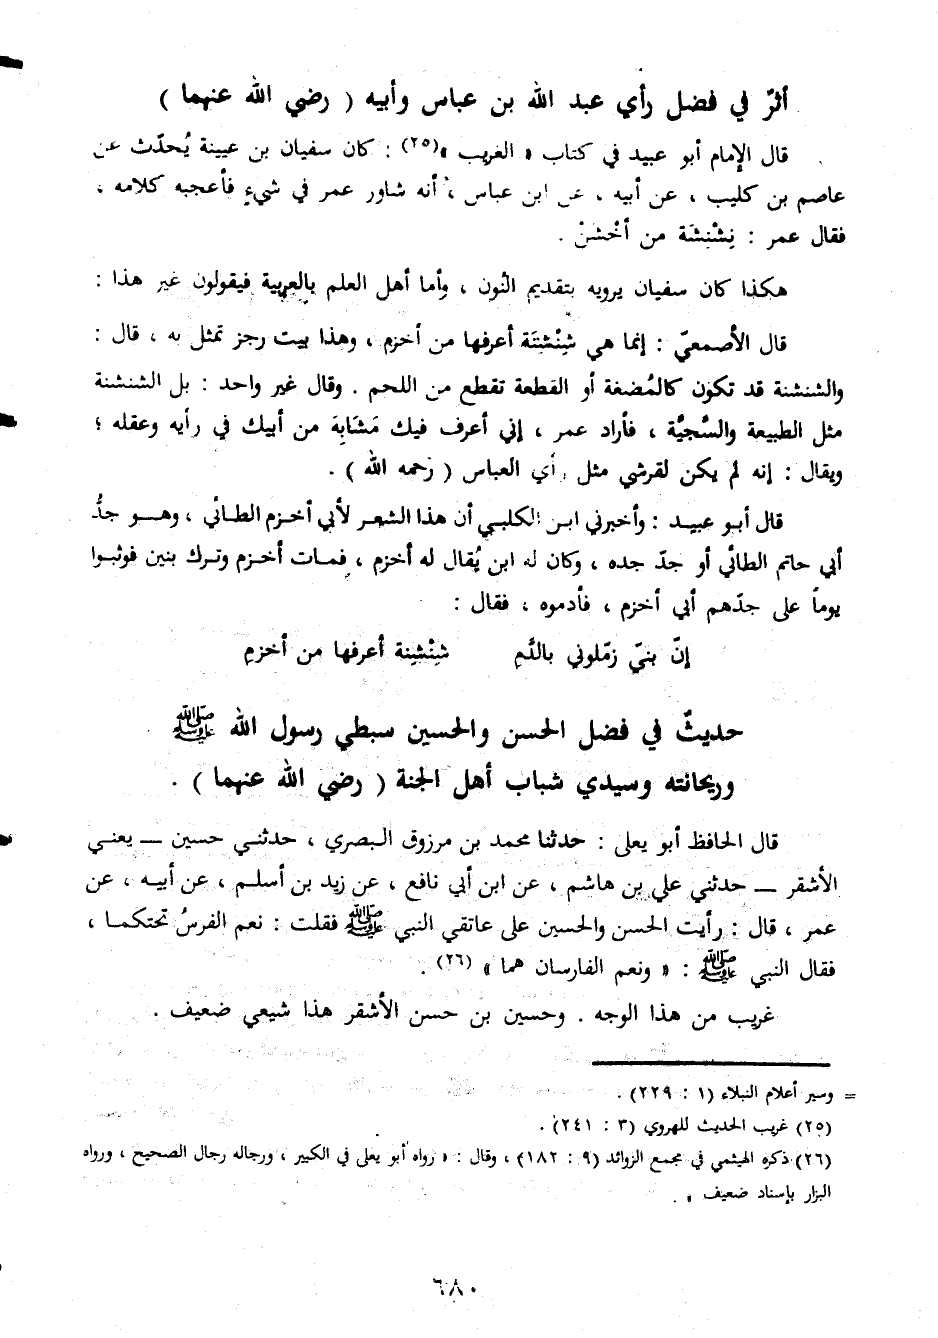 أثرٌ في فضل رأي عبد الله بن عباس وأبيه ( رضي الله عنهما )
قال الإمام أبو عبيد في كتاب « الغريب »(٢٥) : كان سفيان بن عيينة يُحدّث عن
عاصم بن كليب ، عن أبيه ، عن ابن عباس ، أنه شاور عمر في شيءٍ فأعجبه كلامه ،
فقال عمر : نِشْنِشَة من أخْشنْ .
هكذا كان سفيان يرويه بتقديم النُون ، وأما أهل العلم بالعربية فيقولون غير هذا :
قال الأصمعيّ : إنما هي شِنْشِنَة أعرفها من أخزم ، وهذا بيت رجز تمثل به ، قال :
والشنشنة قد تكون كالمُضغة أو القطعة تقطع من اللحم . وقال غير واحد : بل الشنشنة
مثل الطبيعة والسَّجيَّة ، فأراد عمر ، إني أعرف فيك مَشَابِهَ من أبيك في رأيه وعقله ؛
ويقال : إنه لم يكن لقرشي مثل رأي العباس ( رحمه الله ) .
قال أبو عبيد : وأخبرني ابن الكلبي أن هذا الشعر لأبي أخزم الطائي ، وهو جدُّ
أبي حاتم الطائي أو جدّ جده ، وكان له ابن يُقال له أخزم ، فمات أخزم وترك بنين فوثبوا
يوماً على جدّهم أبي أخزم ، فأدموه ، فقال :
إنّ بنيّ زمّلوني بالدَّمِ شِنْشِنة أعرفها من أخزمِ
حديثٌ في فضل الحسن والحسين سبطي رسول الله ﷺ
وريحانته وسيدي شباب أهل الجنة ( رضي الله عنهما ) .
قال الحافظ أبو يعلى : حدثنا محمد بن مرزوق البصري ، حدثني حسين — يعني
الأشقر — حدثني علي بن هاشم ، عن ابن أبي نافع ، عن زيد بن أسلم ، عن أبيه ، عن
عمر ، قال : رأيت الحسن والحسين على عاتقي النبي ﷺ فقلت : نعم الفرسُ تحتكما ،
فقال النبي ﷺ : « ونعم الفارسان هما » (٢٦) .
غريب من هذا الوجه . وحسين بن حسن الأشقر هذا شيعي ضعيف .
= وسير أعلام النبلاء (١ : ٢٢٩) .
(٢٥) غريب الحديث للهروي (٣ : ٢٤١) .
(٢٦) ذكره الهيثمي في مجمع الزوائد (٩ : ١٨٢) ، وقال : « رواه أبو يعلى في الكبير ، ورجاله رجال الصحيح ، ورواه
البزار بإسناد ضعيف » .
٦٨٠